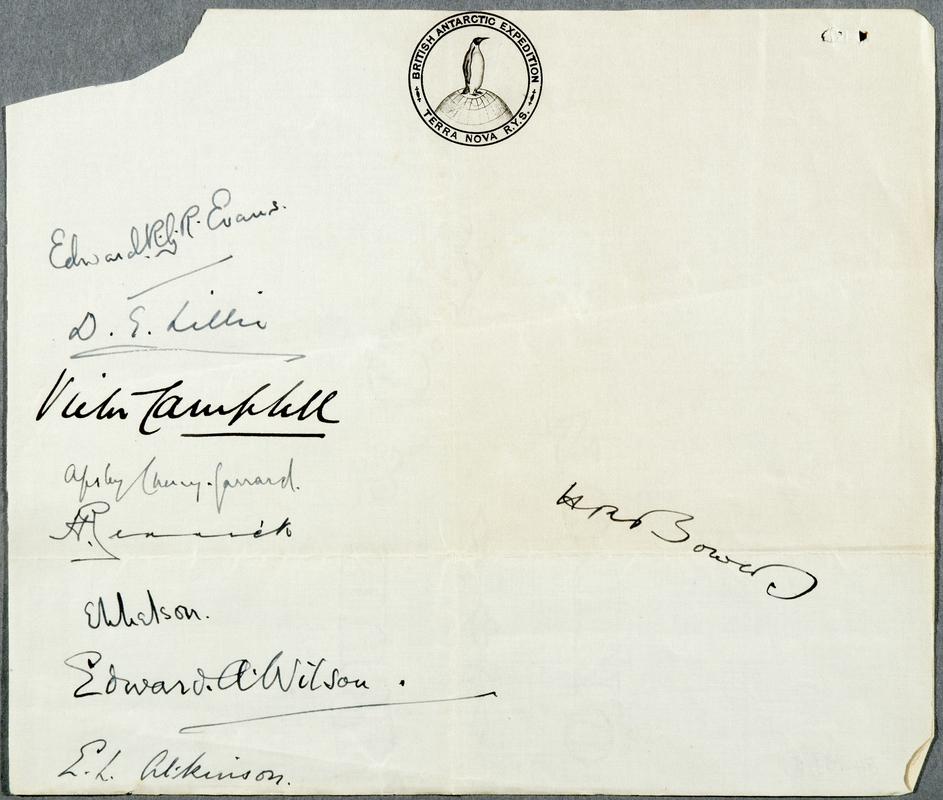 BRITISH ANTARCTIC EXPEDITION
TERRA NOVA R.Y.S.
Edward R.G.R. Evans.
D. G. Lillie
Victor Campbell
Apsley Cherry-Garrard.
H. Rennick
E W Nelson.
Edward. A. Wilson.
E. L. Atkinson.
H R Bowers